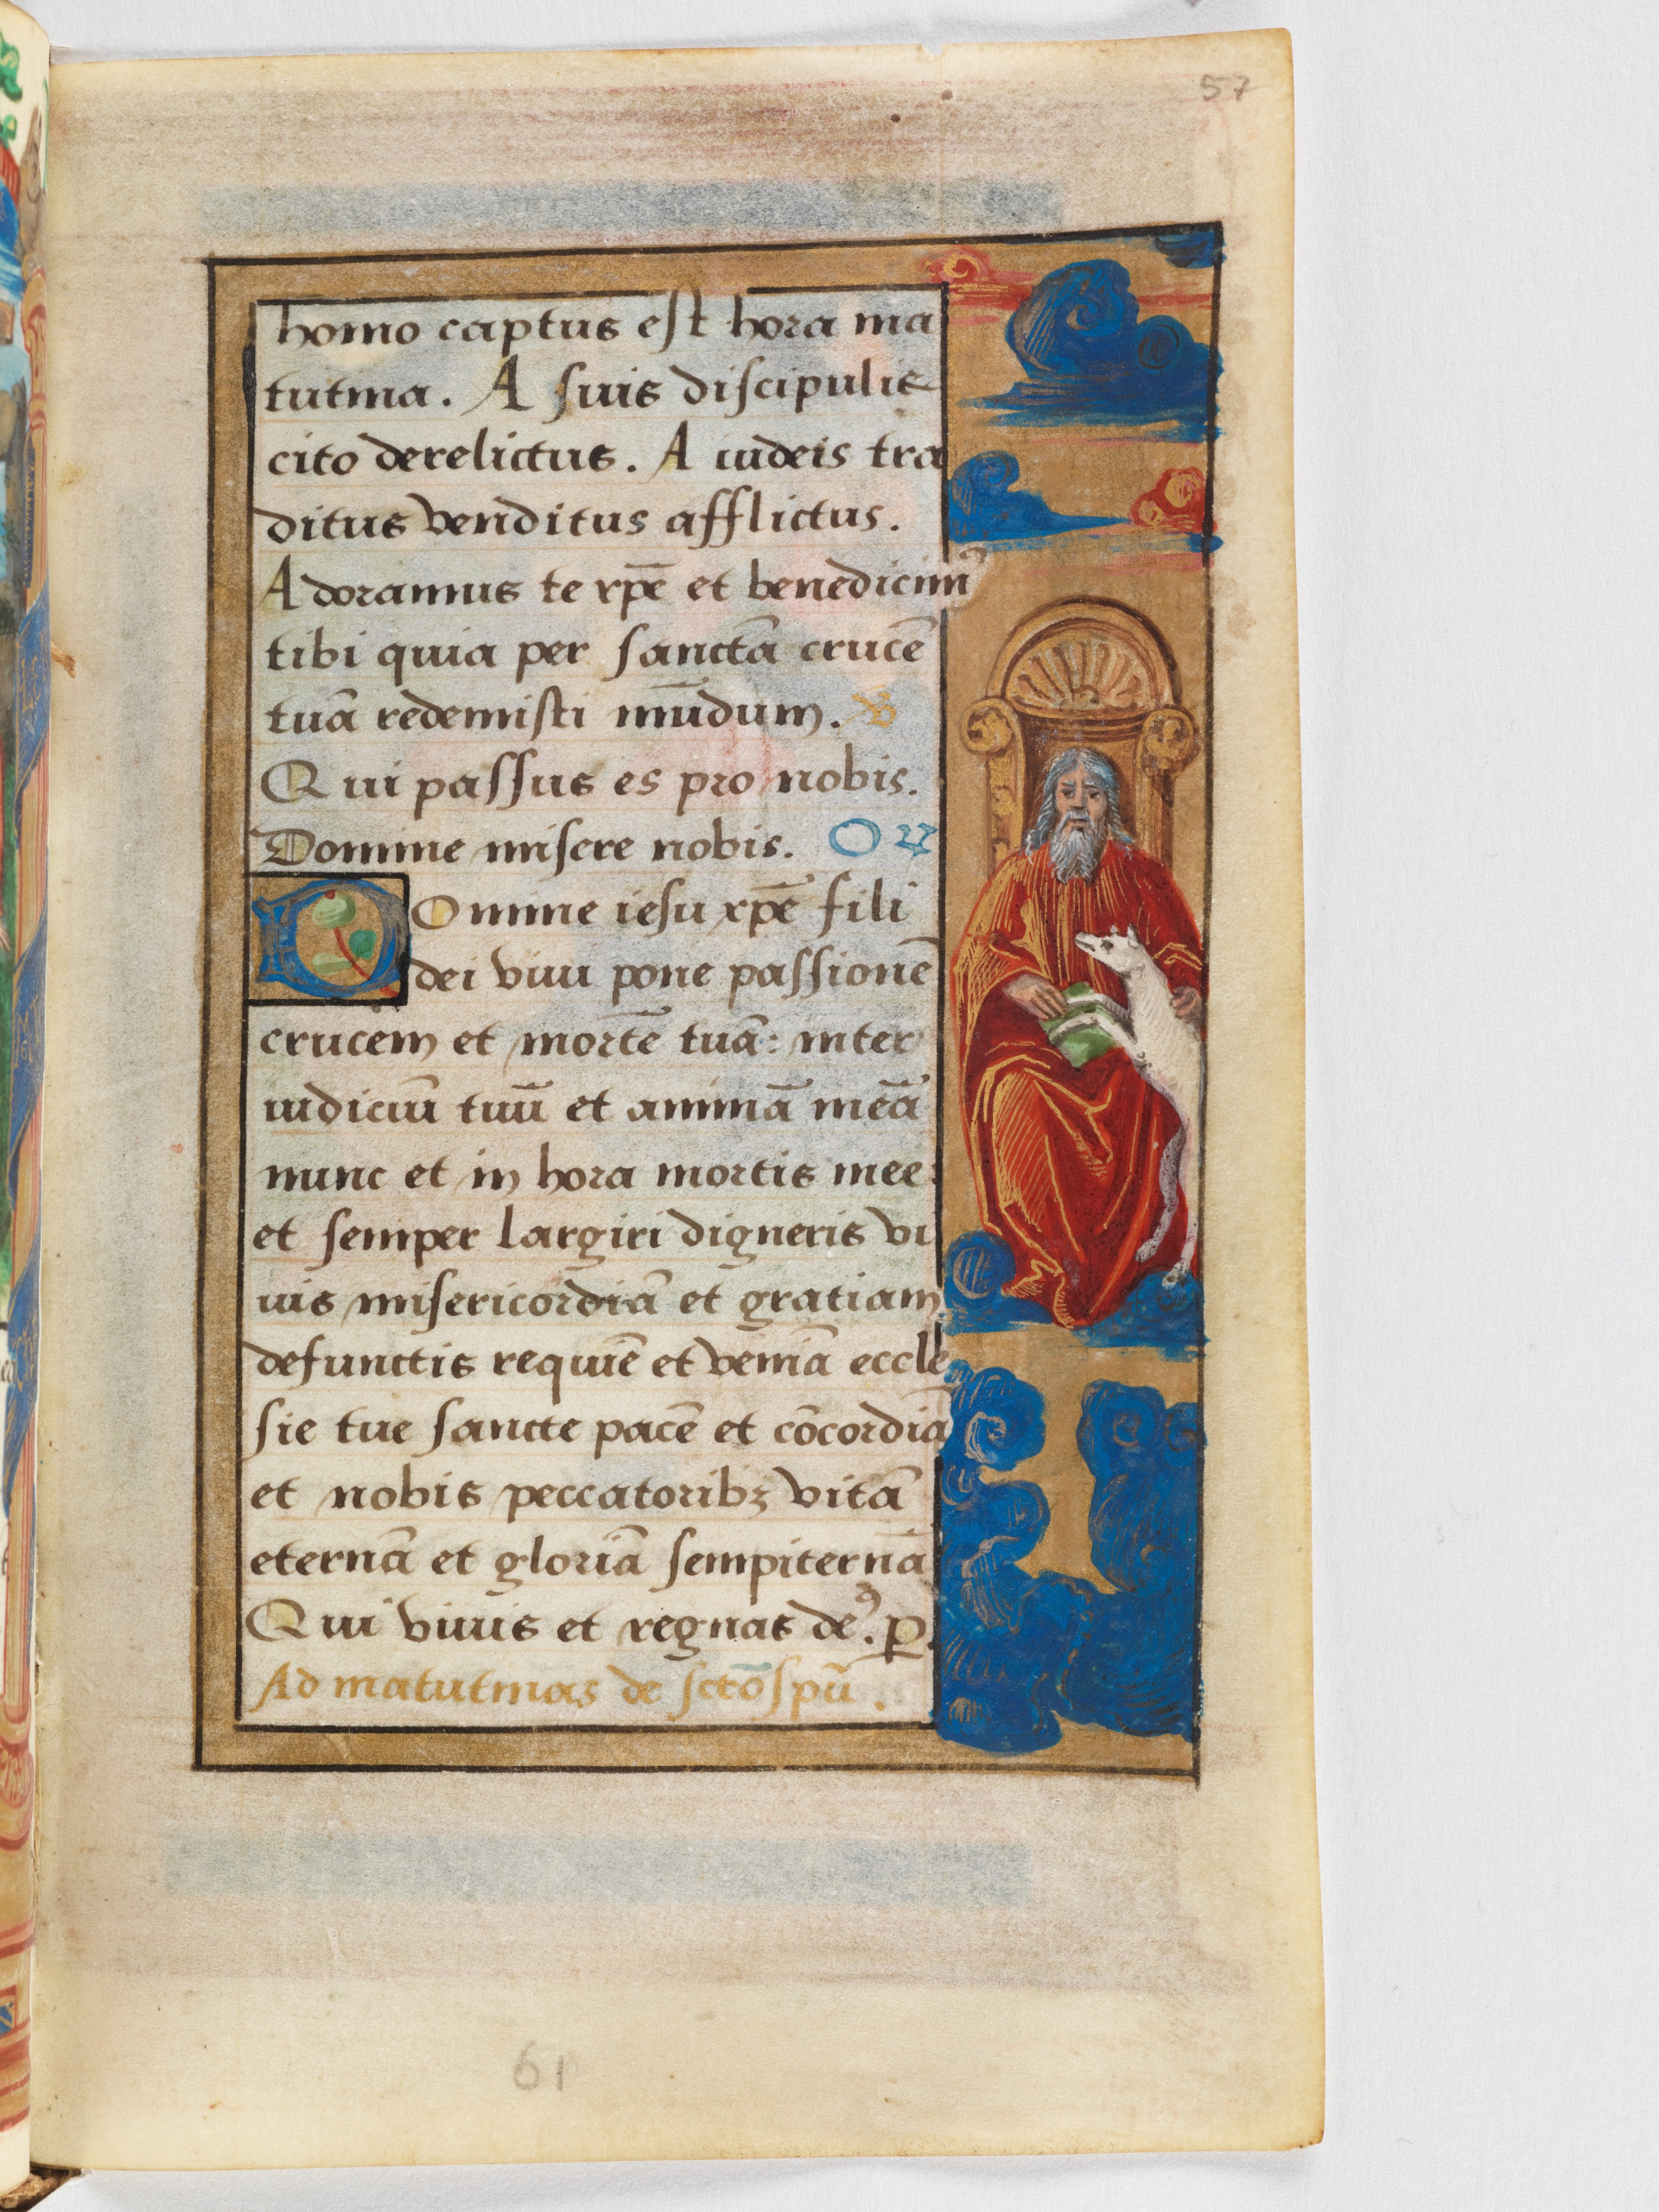 57
homo captus est hora ma
tutina. A suis discipulis
cito derelictus. A iudeis tra
ditus venditus afflictus.
Adoramus te xpē et benedicim⁹
tibi quia per sanctā crucē
tuā redemisti mūdum. v
Qui passus es pro nobis.
Domine misere nobis. Oꝝ
Domine iesu xpē fili
dei viui pone passionē
crucem et mortē tuā: inter
iudiciū tuū et animā meā
nunc et in hora mortis mee:
et semper largiri digneris vi
uis misericordiā et gratiam
defunctis requiē et veniā eccle
sie tue sancte pacē et cōcordiā
et nobis peccatoribꝫ vitā
eternā et gloriā sempiternā
Qui viuis et regnas de⁹. p.
Ad matutinas de sctō spū.
61